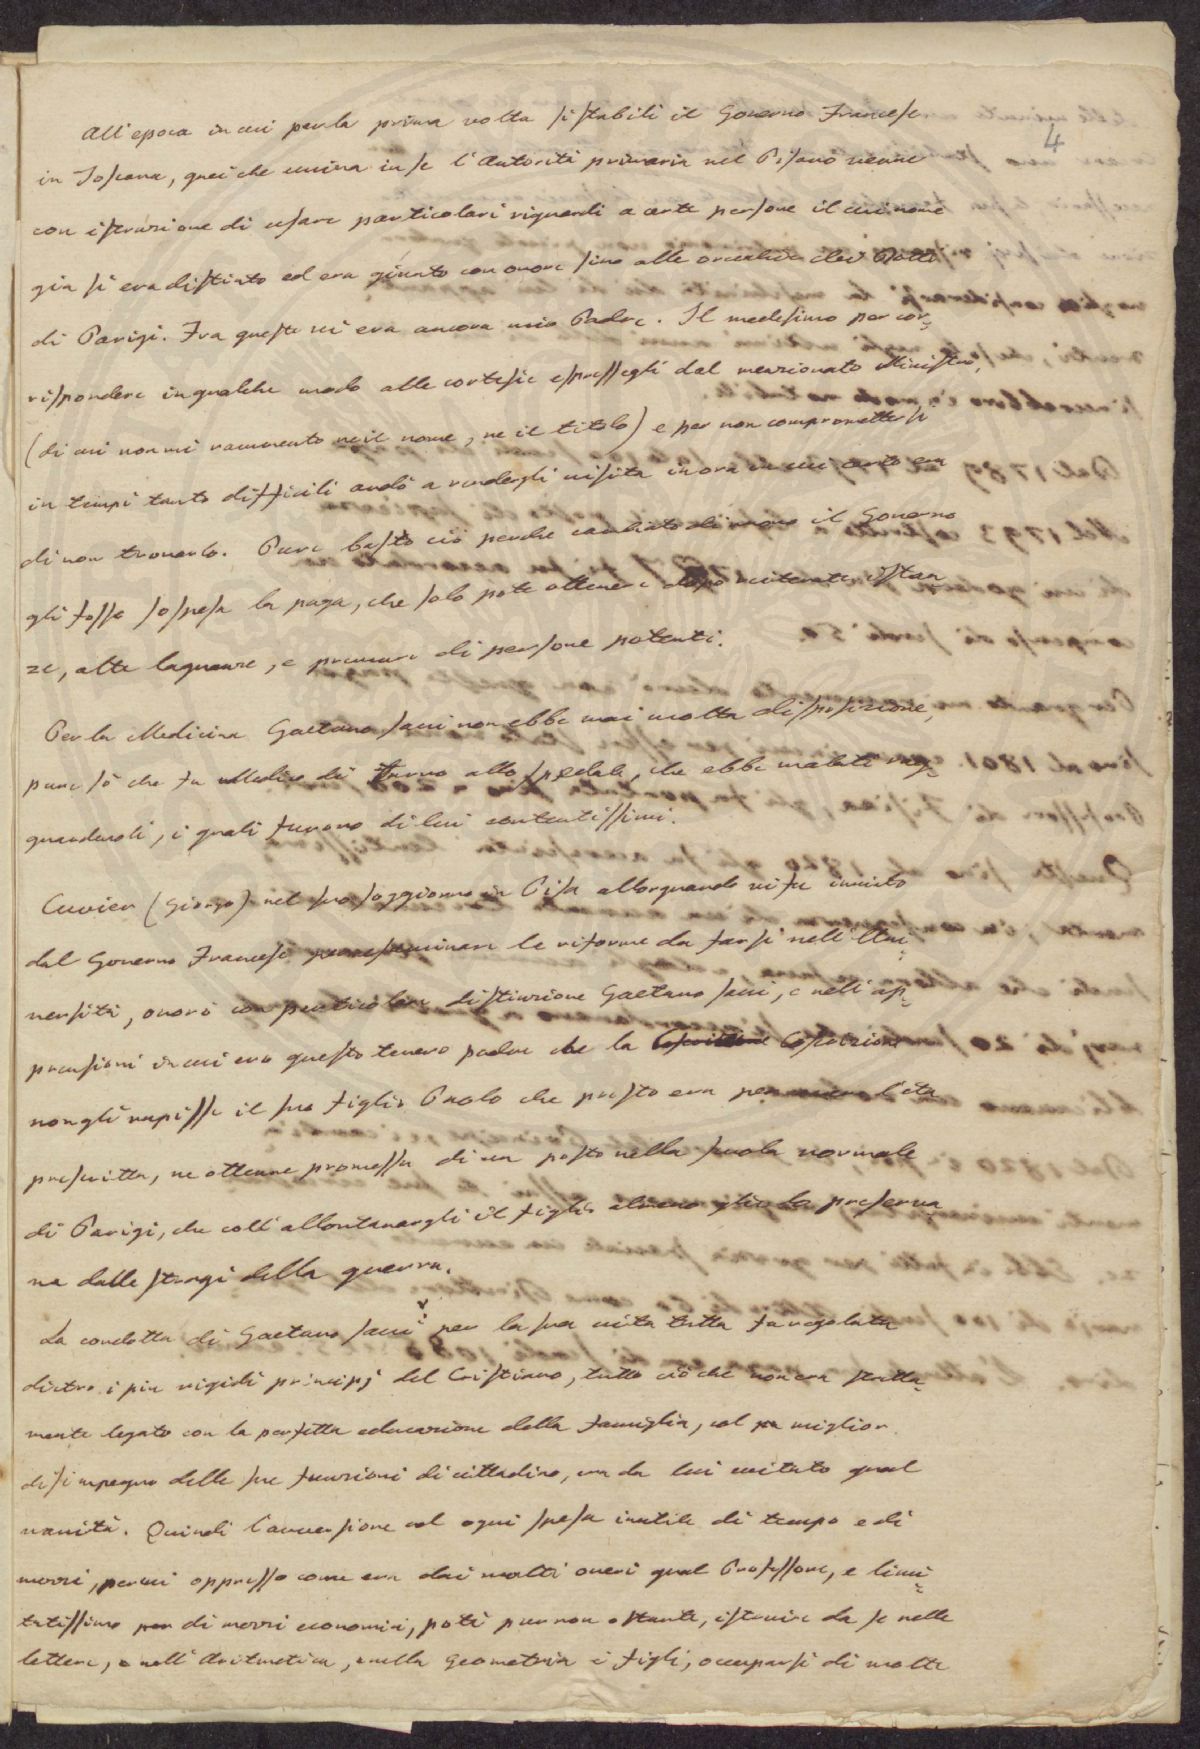 4
All'epoca in cui per la prima volta si stabilì il Governo Francese
in Toscana, quei che univa in se l'Autorità primaria nel Pisano venne
con istruzione di usare particolari riguardi a certe persone il cui nome
già si era distinto ed era giunto con onore sino alle orecchie dei Dotti
di Parigi. Fra queste vi era ancora mio Padre. Il medesimo per cor-
rispondere in qualche modo alle cortesie espressegli dal menzionato Ministro,
(di cui non mi rammento ne il nome, ne il titolo) e per non compromettersi
in tempi tanto difficili andò a rendergli visita in ora in cui certo era
di non trovarlo. Pure bastò ciò perchè cambiato di nuovo il Governo
gli fosse sospesa la paga, che solo potè ottenere dopo reiterate istan
ze, alte lagnanze, e premure di persone potenti.
Per la Medicina Gaetano Savi non ebbe mai molta disposizione,
pure sò che fu Medico di turno allo spedale, che ebbe malati rag-
guardevoli, i quali furono di lui contentissimi.
Cuvier (Giorgio) nel suo soggiorno in Pisa allorquando vi fu inviato
dal Governo Francese per esaminare le riforme da farsi nell'Uni-
versità, onorò con particolare distinzione Gaetano Savi, e nell'ap-
prensioni in cui era questo tenero padre che la Coscrizione
non gli rapisse il suo figlio Paolo che presto era per l'età
prescritta, ne ottenne promessa di un posto nella scuola normale
di Parigi, che coll'allontanargli il figlio almeno glielo preserva
va dalle stragi della guerra.
La condotta di Gaetano Savi per la sua vita tutta fu regolata
dietro i più rigidi principj del Cristiano, tutto ciò che non era stretta-
mente legato con la perfetta educazione della famiglia, col miglior
disimpegno delle sue funzioni di cittadino, era da lui evitato qual
vanità. Quindi l'avversione ad ogni spesa inutile di tempo e di
mezzi, per cui oppresso come era dai molti oneri qual Professore, e limi-
tatissimo di mezzi economici, potè pur non ostante, istruire da se nelle
lettere, e nell'Aritmetica, e nella Geometria i figli, occuparsi di molte